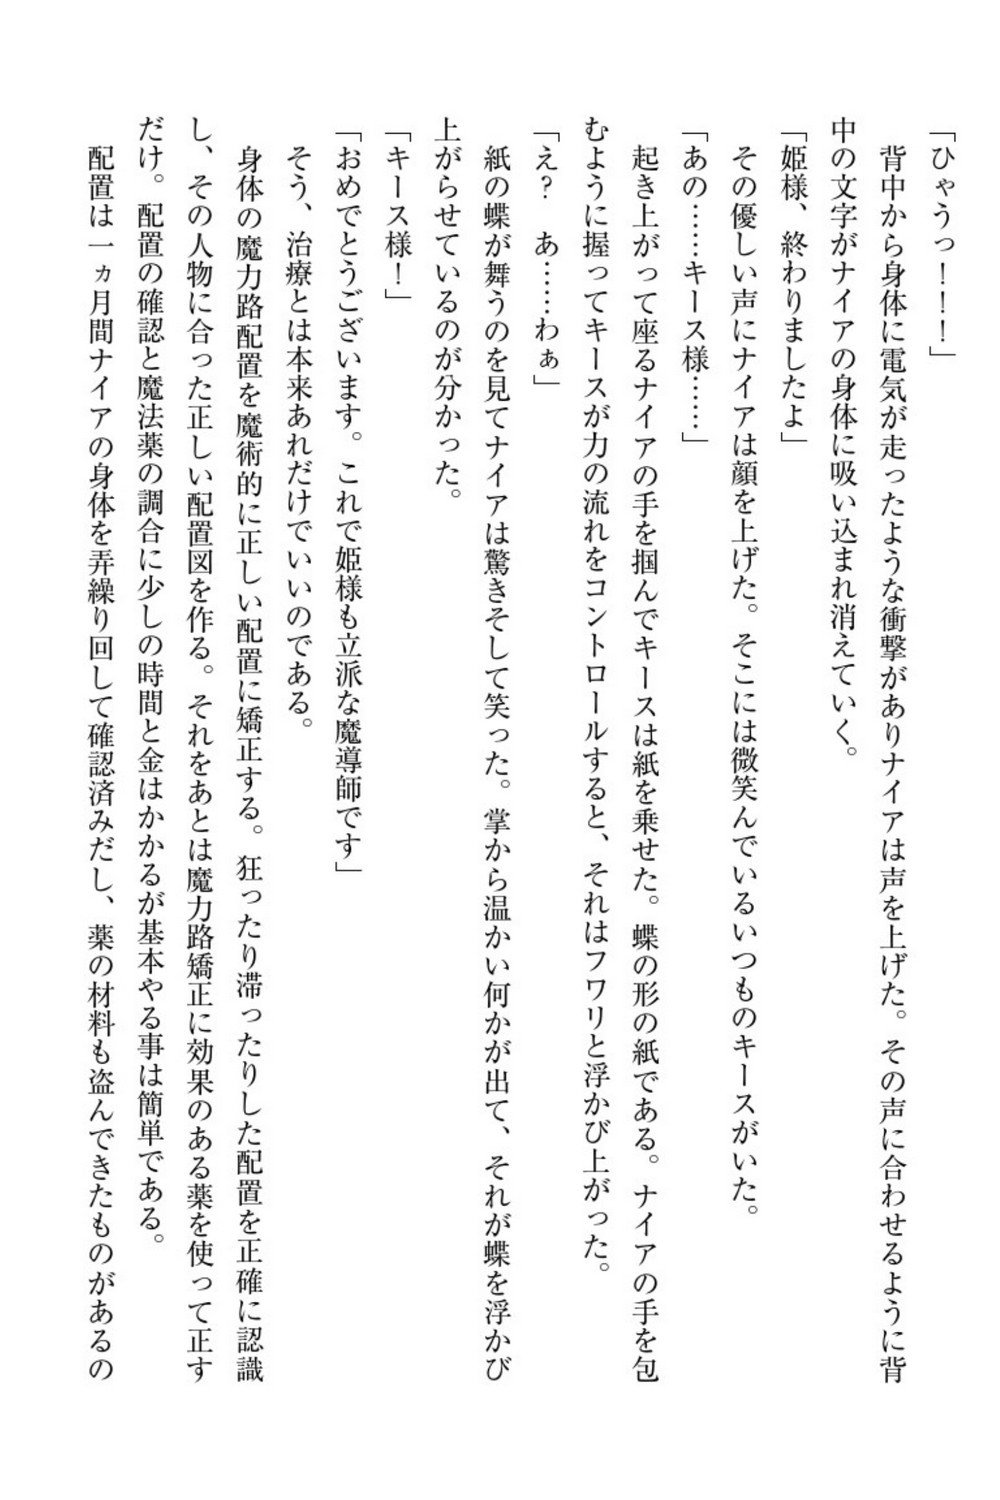 「ひゃうっ！！！」
　背中から身体に電気が走ったような衝撃がありナイアは声を上げた。その声に合わせるように背
中の文字がナイアの身体に吸い込まれ消えていく。
「姫様、終わりましたよ」
　その優しい声にナイアは顔を上げた。そこには微笑んでいるいつものキースがいた。
「あの……キース様……」
　起き上がって座るナイアの手を掴んでキースは紙を乗せた。蝶の形の紙である。ナイアの手を包
むように握ってキースが力の流れをコントロールすると、それはフワリと浮かび上がった。
「え？　あ……わぁ」
　紙の蝶が舞うのを見てナイアは驚きそして笑った。掌から温かい何かが出て、それが蝶を浮かび
上がらせているのが分かった。
「キース様！」
「おめでとうございます。これで姫様も立派な魔導師です」
　そう、治療とは本来あれだけでいいのである。
　身体の魔力路配置を魔術的に正しい配置に矯正する。狂ったり滞ったりした配置を正確に認識
し、その人物に合った正しい配置図を作る。それをあとは魔力路矯正に効果のある薬を使って正す
だけ。配置の確認と魔法薬の調合に少しの時間と金はかかるが基本やる事は簡単である。
　配置は一ヵ月間ナイアの身体を弄繰り回して確認済みだし、薬の材料も盗んできたものがあるの